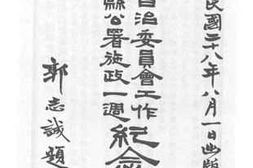 民國二十八年八月一日出版
自治委員會工作
縣公署施政一週
紀念
郭志誠題